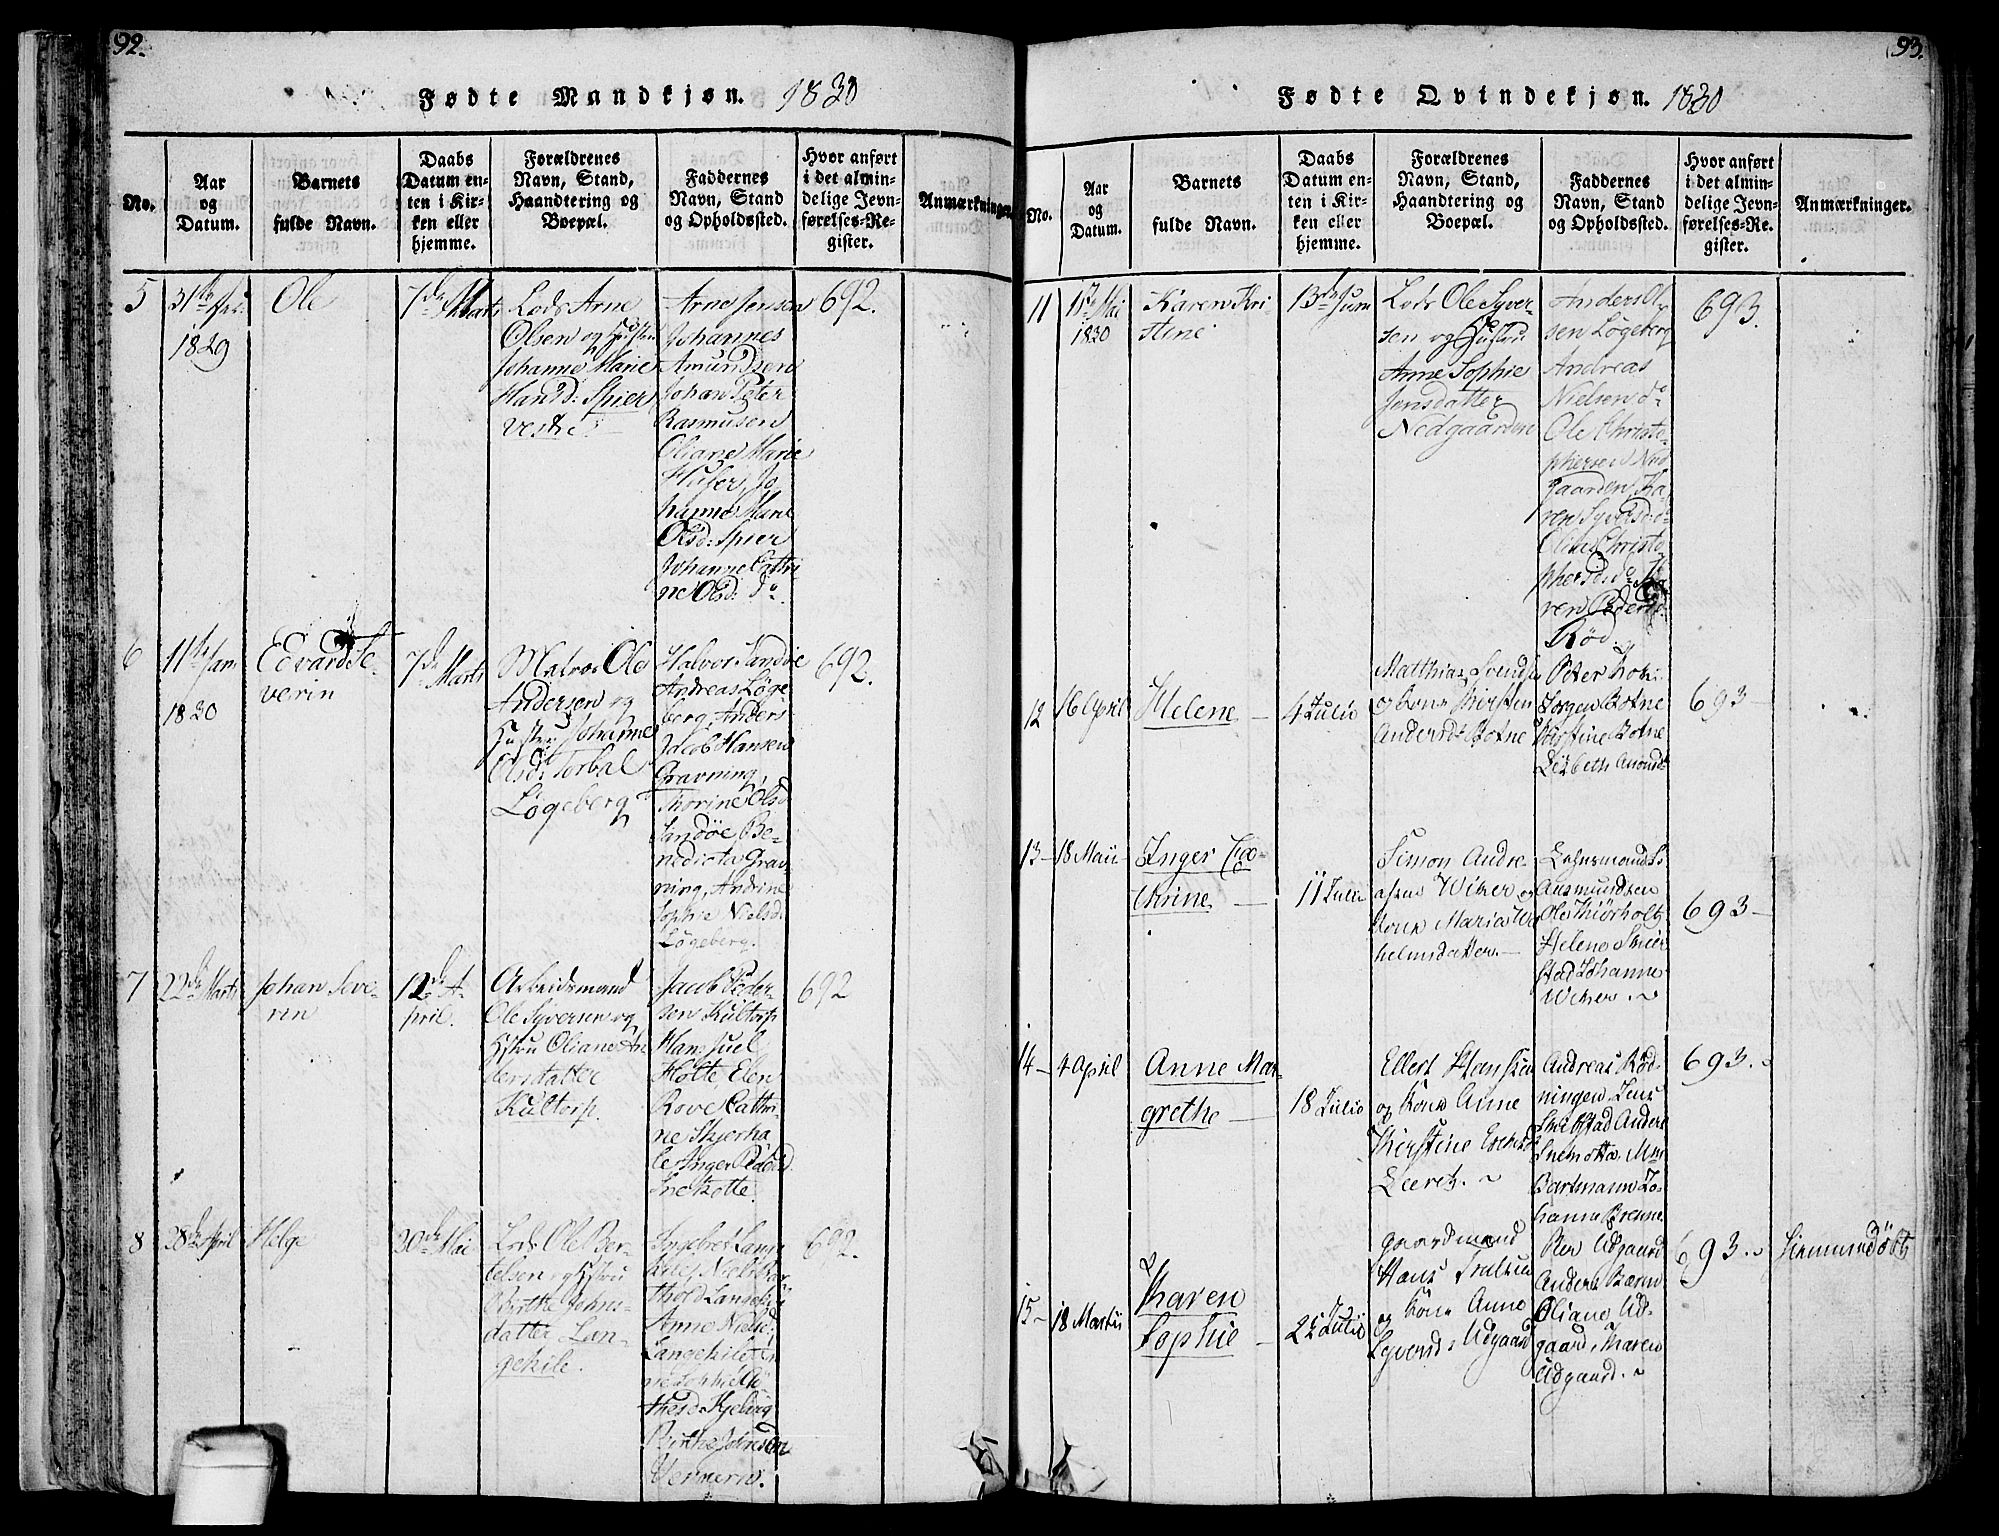 92.
Fødte Mandkjøn. 1830
No.
Aar
og
Datum.
Barnets
fulde Navn.
Daabs
Datum en-
ten i Kir-
ken eller
hjemme.
Forældrenes
Navn, Stand,
Haandtering og
Boepæl.
Faddernes
Navn, Stand
og Opholdssted.
Hvor anført
i det almin-
delige Jevn-
førelses-Re-
gister.
Anmærkninger.
5
1829
Ole
7de Marts
Lods Arne
Olsen og Hustru
Johanne Marie
Hansd: Spier
Vestre
Arne Jensen
Johannes
Amundsen
Johan Peter
Rasmusen
Oliane Marie
Huser, Jo-
hanne Marie
Olsd: Spier
Johanne Cathri-
ne Olsd: do
692.
6
11te Jan
1830
Edvard Se-
verin
7de Marts
Matros Ole
Andersen og
Hustru Johanne
Olsd: Torbal
Løgeberg
Halvor Sandøe
Andreas Løge-
berg, Anders
Jacob Hansen
Gravning,
Thorine Olsd
Sandøe Be-
nedicta Grav-
ning, Andrine
Sophie Nielsd.
Løgeberg.
692.
7
22de Marts
Johan Seve-
rin
12de A-
pril.
Arbeidsmand
Ole Syversen og
Hstru Oliane An-
dersdatter
Kultorp.
Jacob Peder-
sen Kultorp
Hans Juel
Holte, Elen
Rove Cathri-
ne Skjerha-
le Inger Pedersd.
Snekotte.
692
8
28de April
Helge
30de Mai
Lods Ole Ber-
telsen og Hstru
Birthe Johns-
datter Lan-
gekile.
Ingebret Lange-
kile, Niels Bar-
thold Langekile
Anne Nielsd.
Langekile
Kjelvig
692.
93.
Fødte Qvindekjøn. 1830
No.
Aar
og
Datum.
Barnets
fulde Navn.
Daabs
Datum en-
ten i Kir-
ken eller
hjemme.
Forældrenes
Navn, Stand,
Haandtering og
Boepæl.
Faddernes
Navn, Stand
og Opholdssted.
Hvor anført
i det almin-
delige Jevn-
førelses-Re-
gister.
Anmærkninger.
11
Mai
1830
Karen Kri-
stine
13de Juni
Lods Ole Syver-
sen og Hustru
Anne Sophie
Jensdatter
Nedgaarden
Anders Ol-
sen Løgeberg
Andreas
Nielsen do
Ole Christo-
phersen Ned-
gaarden, Ka-
ren Syversd: do
Oline Christo-
phersd: do Ka-
ren Pedersd:
Rød.
693.
12
16 April
Helene
4 Julio
Matthias Svends
og Kone Kirsten
Andersd: Botne
Peter
Jørgen Botne
Kirstine Botne
Lisbeth
693
13
18 Maii
Inger Ca-
thrine
11 Julio
Simon Andre-
asen Wiker og
Kone Maria
helmsdatter
Lehnsmand
Aasmundsen
Ole Thiørholt
Helene Skier-
stad Johanne
Wiker
693
14
4 April
Anne Mar-
grethe
18 Julio
Ellert Hansen
og Kone Anne
Kirstine
Leerch.
Andreas Rød-
ningen Jens
Anders
Snekotta Mne
Bartmann Jo-
hanna Brenne
693.
15
18 Martii
Karen
Sophie
25 Julio
Gaardmand
Hans
og Kone Anne
Syversd: Udgaard
Per Udgaard
Anders Bærø
Oliane Ud-
gaard, Karen
Udgaard.
693.